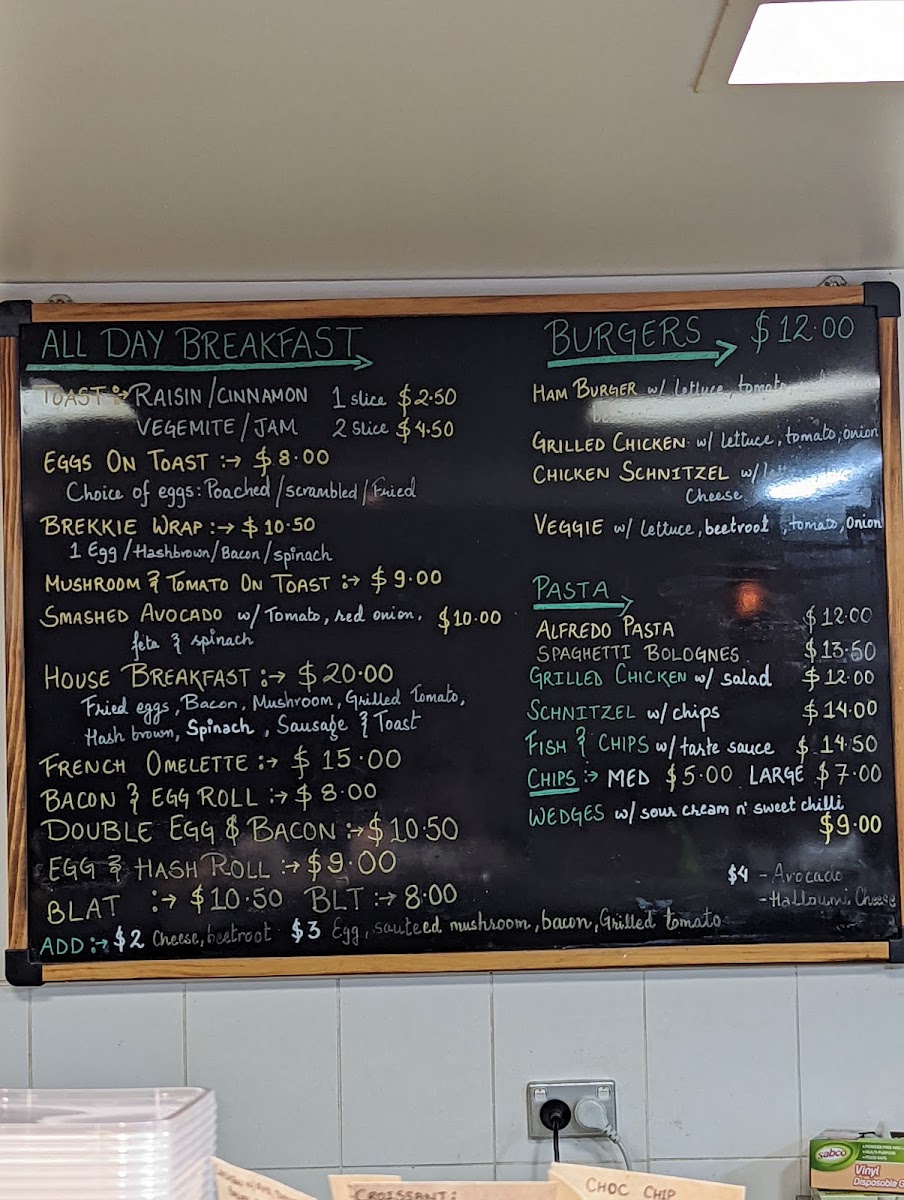 ALL DAY BREAKFAST
TOAST :→ RAISIN/CINNAMON 1 slice $2.50
VEGEMITE/JAM 2 slice $4.50
EGGS ON TOAST :→ $8.00
Choice of eggs: Poached/scrambled/Fried
BREKKIE WRAP :→ $10.50
1 Egg/Hashbrown/Bacon/spinach
MUSHROOM & TOMATO ON TOAST :→ $9.00
SMASHED AVOCADO w/ Tomato, red onion, $10.00
feta & spinach
HOUSE BREAKFAST :→ $20.00
Fried eggs, Bacon, Mushroom, Grilled Tomato,
Hash brown, Spinach, Sausage & Toast
FRENCH OMELETTE :→ $15.00
BACON & EGG ROLL :→ $8.00
DOUBLE EGG & BACON :→ $10.50
EGG & HASH ROLL :→ $9.00
BLAT :→ $10.50 BLT :→ 8.00
ADD :→ $2 Cheese, beetroot $3 Egg, sauteed mushroom, bacon, Grilled tomato
BURGERS → $12.00
HAM BURGER w/ lettuce, tomato,
GRILLED CHICKEN w/ lettuce, tomato, onion
CHICKEN SCHNITZEL w/
Cheese
VEGGIE w/ lettuce, beetroot, tomato, Onion
PASTA
ALFREDO PASTA $12.00
SPAGHETTI BOLOGNES $13.50
GRILLED CHICKEN w/ salad $12.00
SCHNITZEL w/ chips $14.00
FISH & CHIPS w/ tarte sauce $14.50
CHIPS :→ MED $5.00 LARGE $7.00
WEDGES w/ sour cream n' sweet chilli
$9.00
$4 - Avocado
- Halloumi Cheese
CROISSANT:
CHOC CHIP
sabco
Vinyl
Disposable G